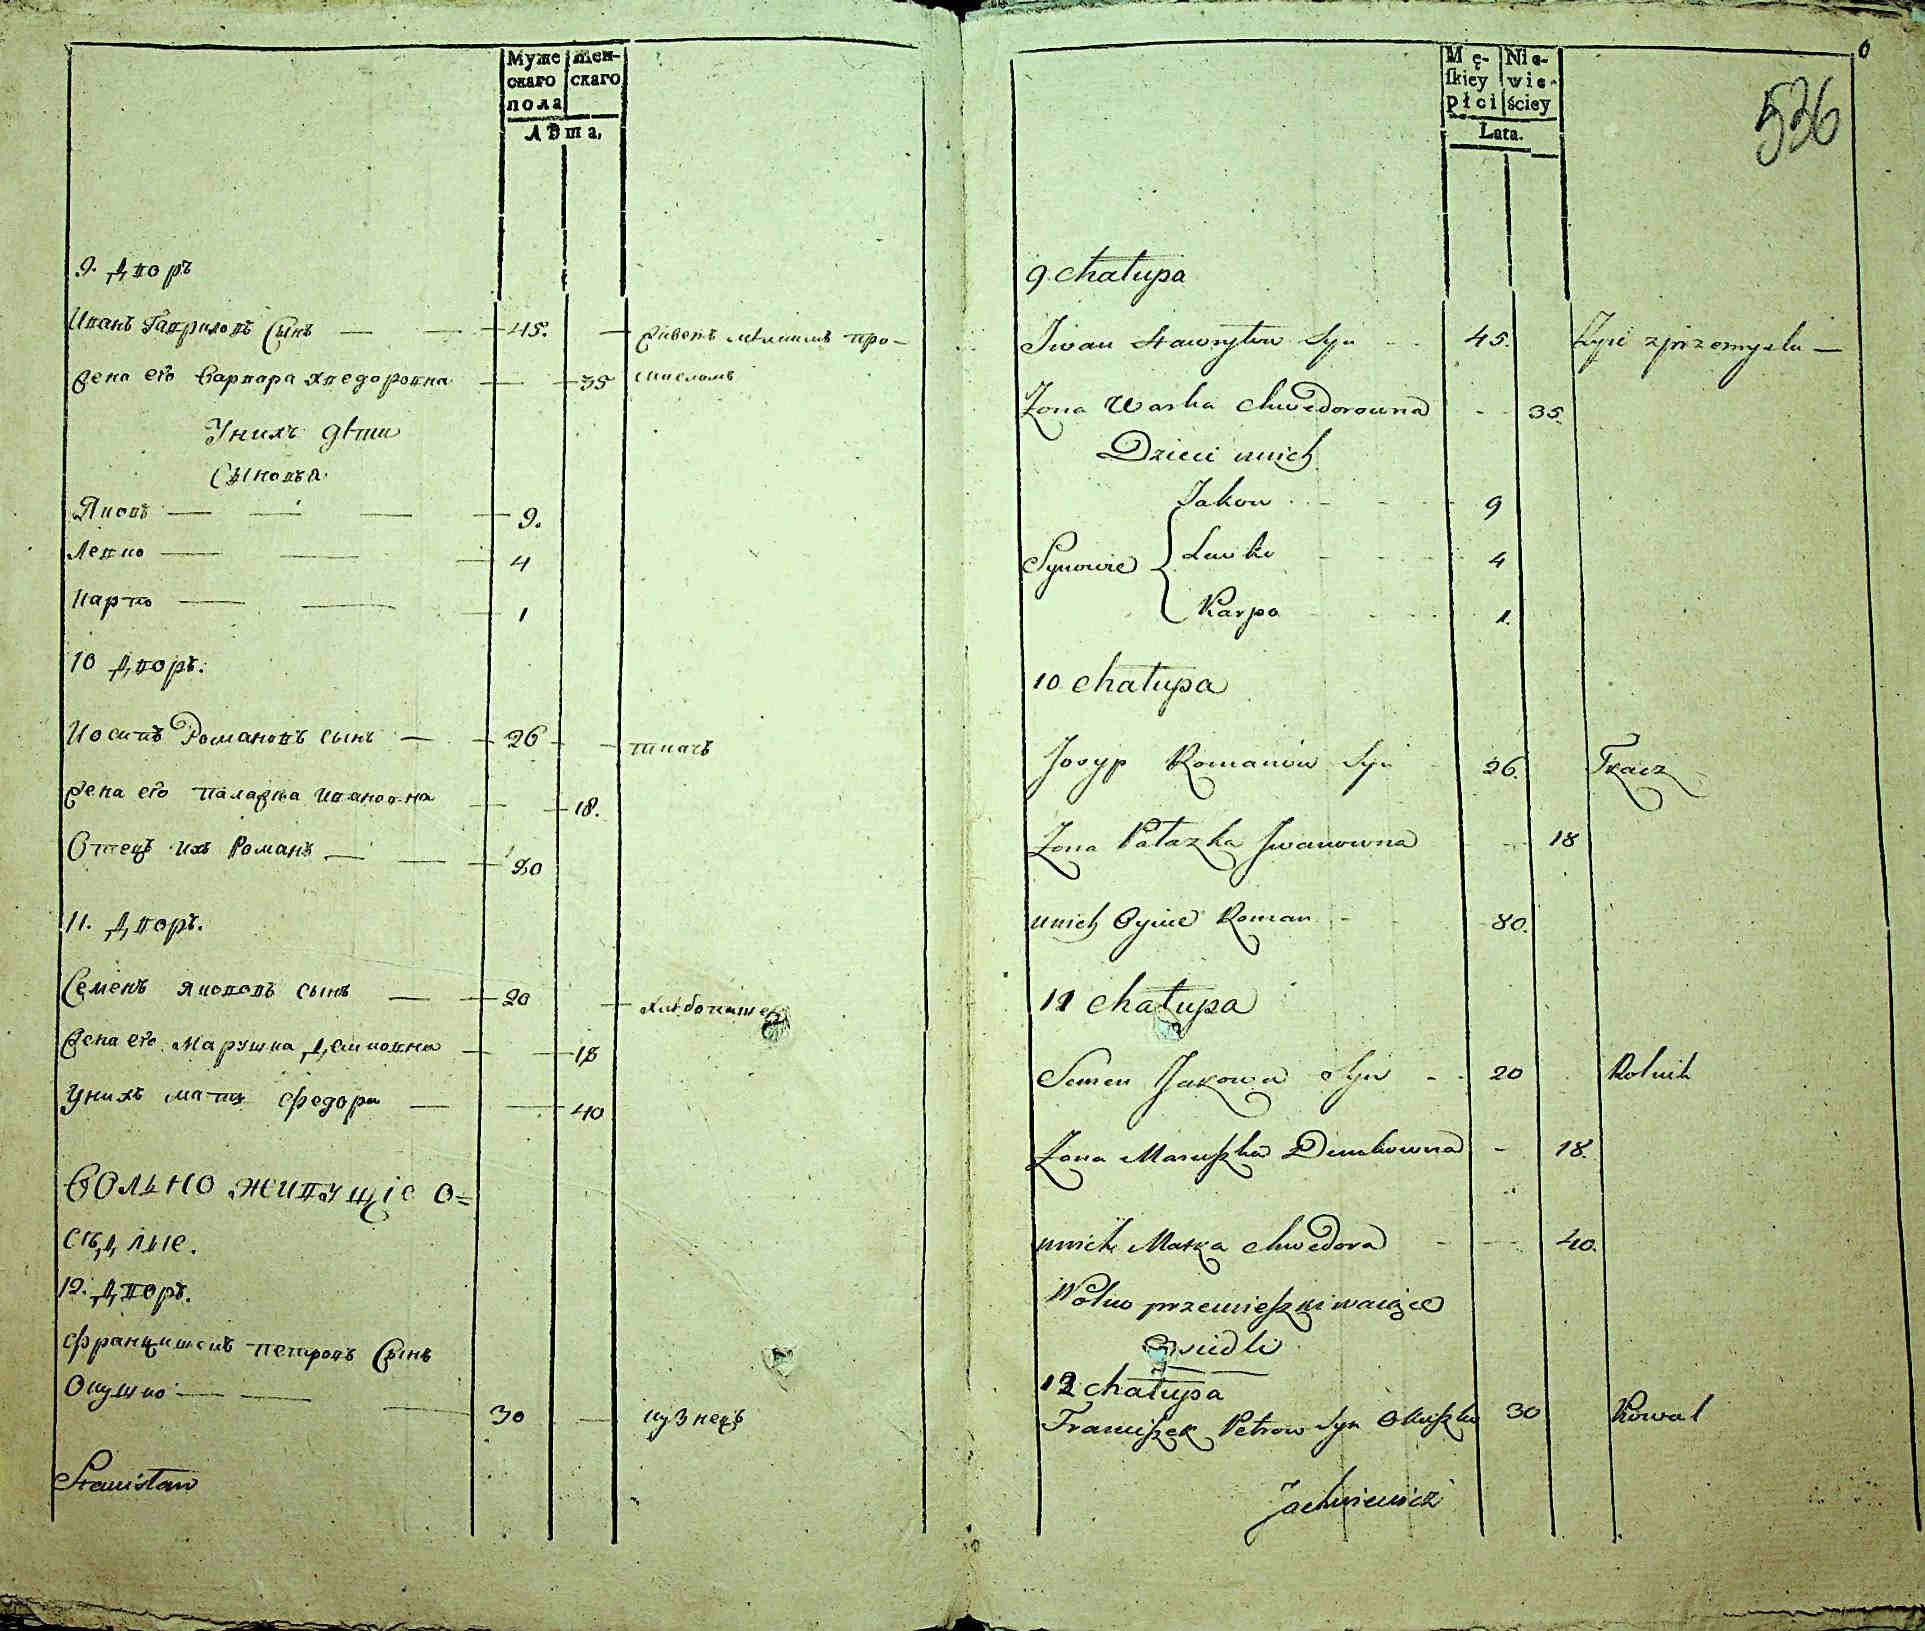 Муже
скаго
пола
жен-
скаго
Лѣта.
9. Дворъ
Иванъ Гавриловъ Сынъ — — 45. — живетъ мѣлкимъ про-
жена его Варвара Хведоровна — 35 мысломъ
Унихъ дѣти
Сыновья
Яковъ — — — 9.
Левко — — 4
Карпо — — 1
10 Дворъ.
Иосипъ Романовъ сынъ — 26 — ткачь
жена его Палажка Ивановна — 18.
Отецъ ихъ Романъ — — 80
11. Дворъ.
Семенъ Якововъ сынъ — 20 — хлѣбопашец
жена его Марушка Демковна — 18
Унихъ мать Федора — 40
Вольно живущіе о=
сѣдлые.
12. Дворъ.
Францишекъ Петровъ Сынъ
Окушко — — 30 — кузнецъ
Stanisław
6
536
Mę-
skiey
płci
Nie-
wie-
ściey
Lata.
9 chałupa
Jwan Hawryłow Syn 45. Żyie z przemysłu —
Żona Warka Chwedorowna 35.
Dzieci unich
Jakow 9
Synowie Lewko 4
Karpo 1.
10 chałupa
Josyp Romanow Syn 26. Tkacz
Żona Pałazka Jwanowna 18
unich Oyciec Roman 80.
11 chałupa
Semen Jakowa Syn 20 Rolnik
Żona Maruszka Demkowna 18.
unich Matka Chwedora 40.
Wolno przemieszkiwaiące
Osiedli
12 chałupa
Franciszek Petrow Syn Okuszko 30 Kowal
Jachniewicz